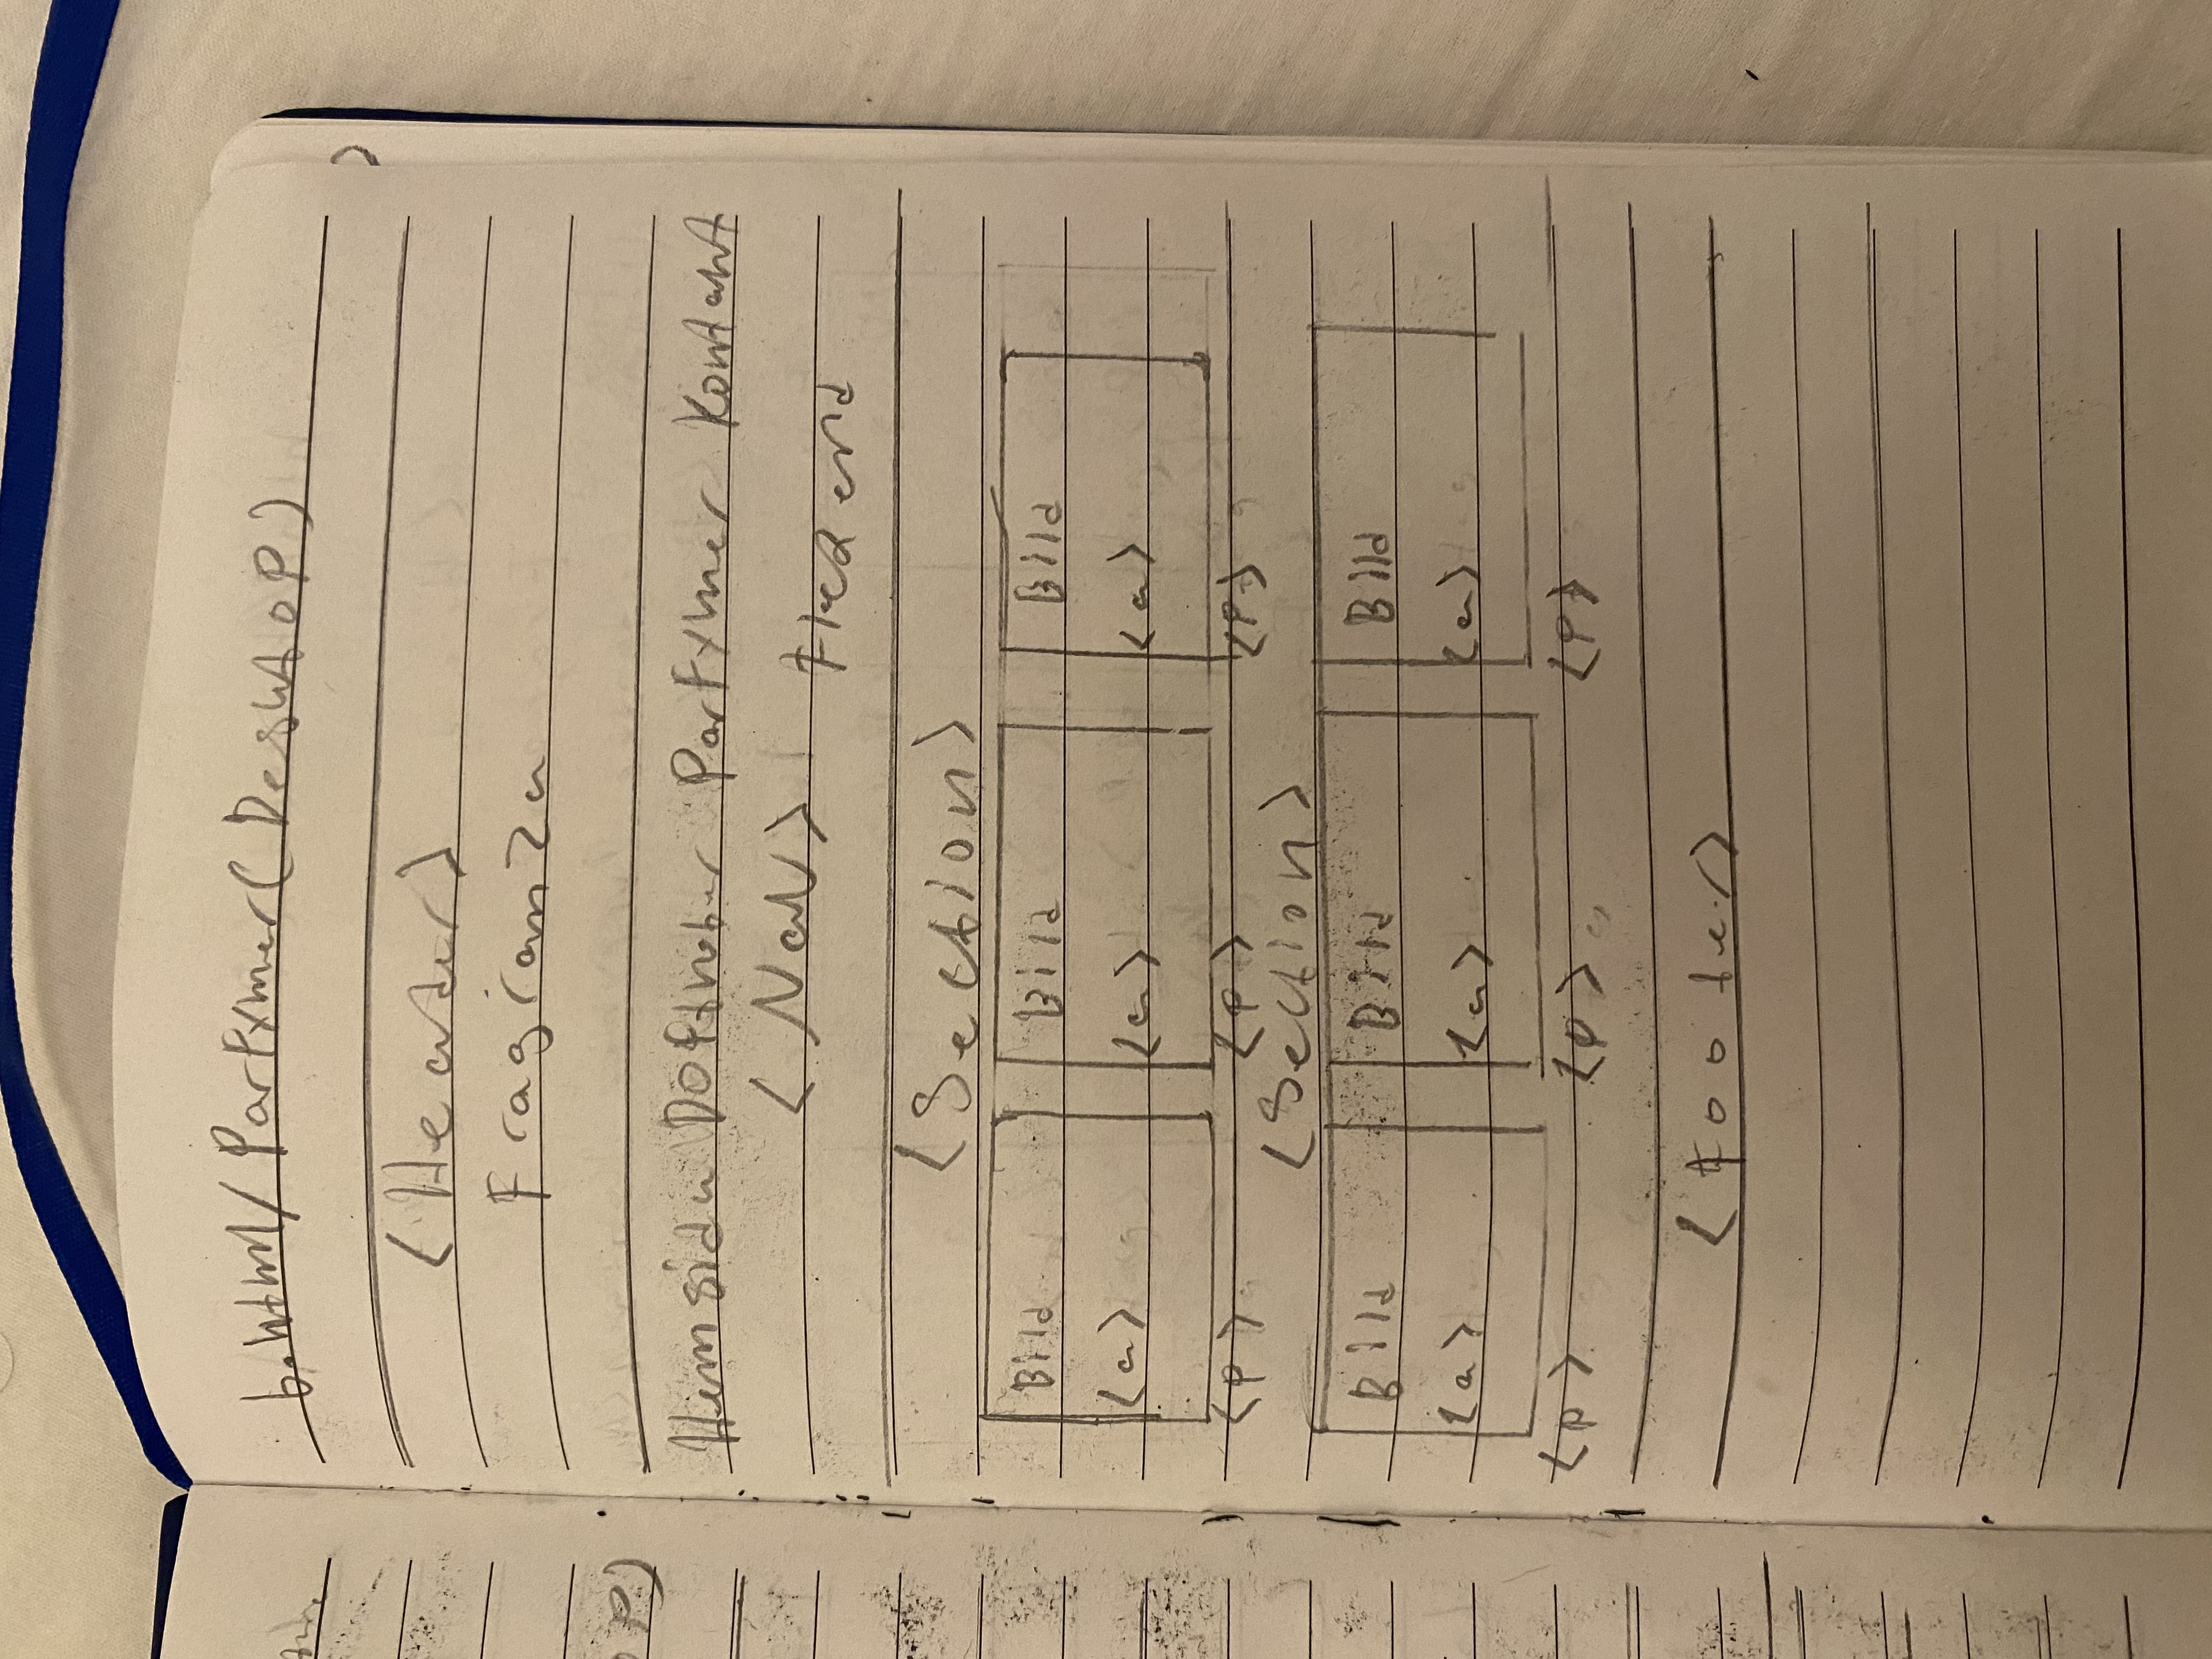 b.html/Parfymer(Desktop)
<Header>
Fragranza
Hemsida Doftnoter Parfymer Kontakt
<Nav> Flex end
<Section>
Bild Bild Bild
<a> <a> <a>
<p> <p> <p>
<Section>
Bild Bild Bild
<a> <a> <a>
<p> <p> <p>
<Footer>
OP)